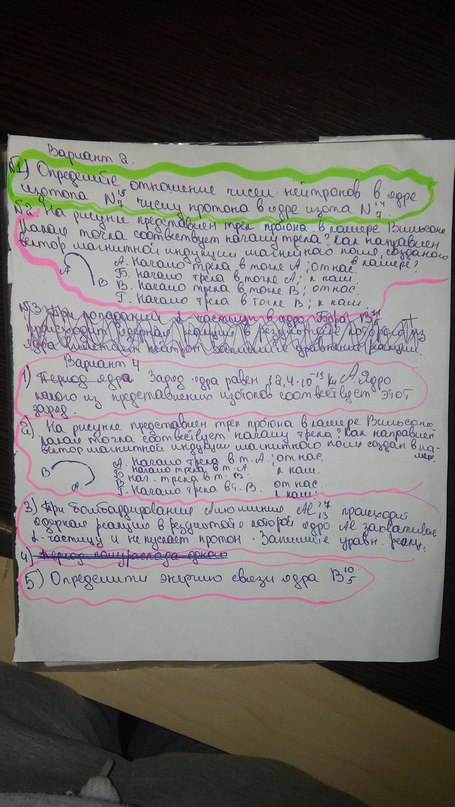 Вариант 2.
№1) Определите отношение чисел нейтронов в ядре
изотопа N числу протона в ядре изота N 14 7
№2 На рисунке представлен трек протона в камере Вильсона
Какая точка соотвествует началу трека? Как направлен
вектор магнитной индукции магнитного поля, созданого
в камере?
А. Начало трека в точке А; от нас.
Б. Начало трека в точке А; к нам.
В. Начало трека в точке В; от нас.
Г. Начало трека в точке В; к нам.
A
B
№3 При попадании
Вариант 4
1) Заряд ядра равен А. Ядро
какого из представлених изотопов соответсвует этот
заряд.
2) На рисунке представлен трек протона в камере Вильсона.
Какая точка соотвествует началу трека? Как направлен
вектор магнитной индукции магнитного поля создан в ка-
мере
B
A
А. Начало трека в т. А; от нас.
Б. Начало трека в т. А к нам.
В. нач. трека в т. В. от нас
Г. Начало трека в т. В. к нам.
3) При бомбардирование Алюминия Al происходит
ядерная реакция в результате которой ядро Al захватывае
α-частицу и испускает протон. Запишите уравн. реакц.
4)
5) Определити энергию связи ядра B 10 5